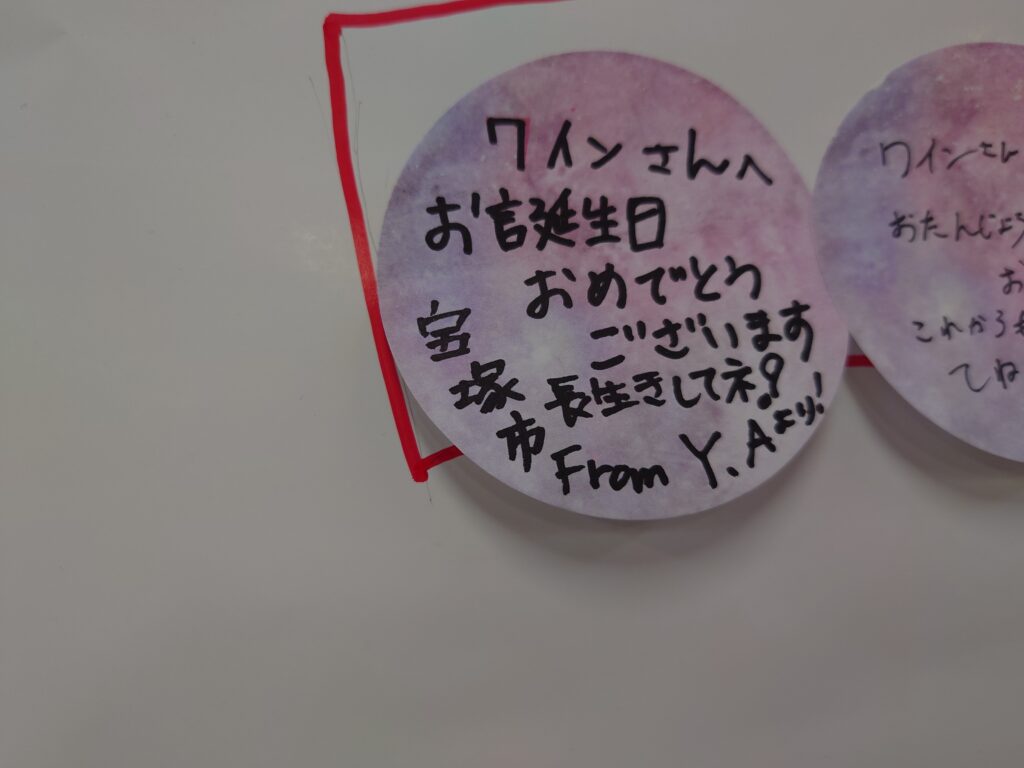 ワインさんへ
お誕生日
おめでとう
ございます
長生きしてネ?
From Y.Aより!
宝塚市
ワインさん
おたんじょう
お
これから
てね